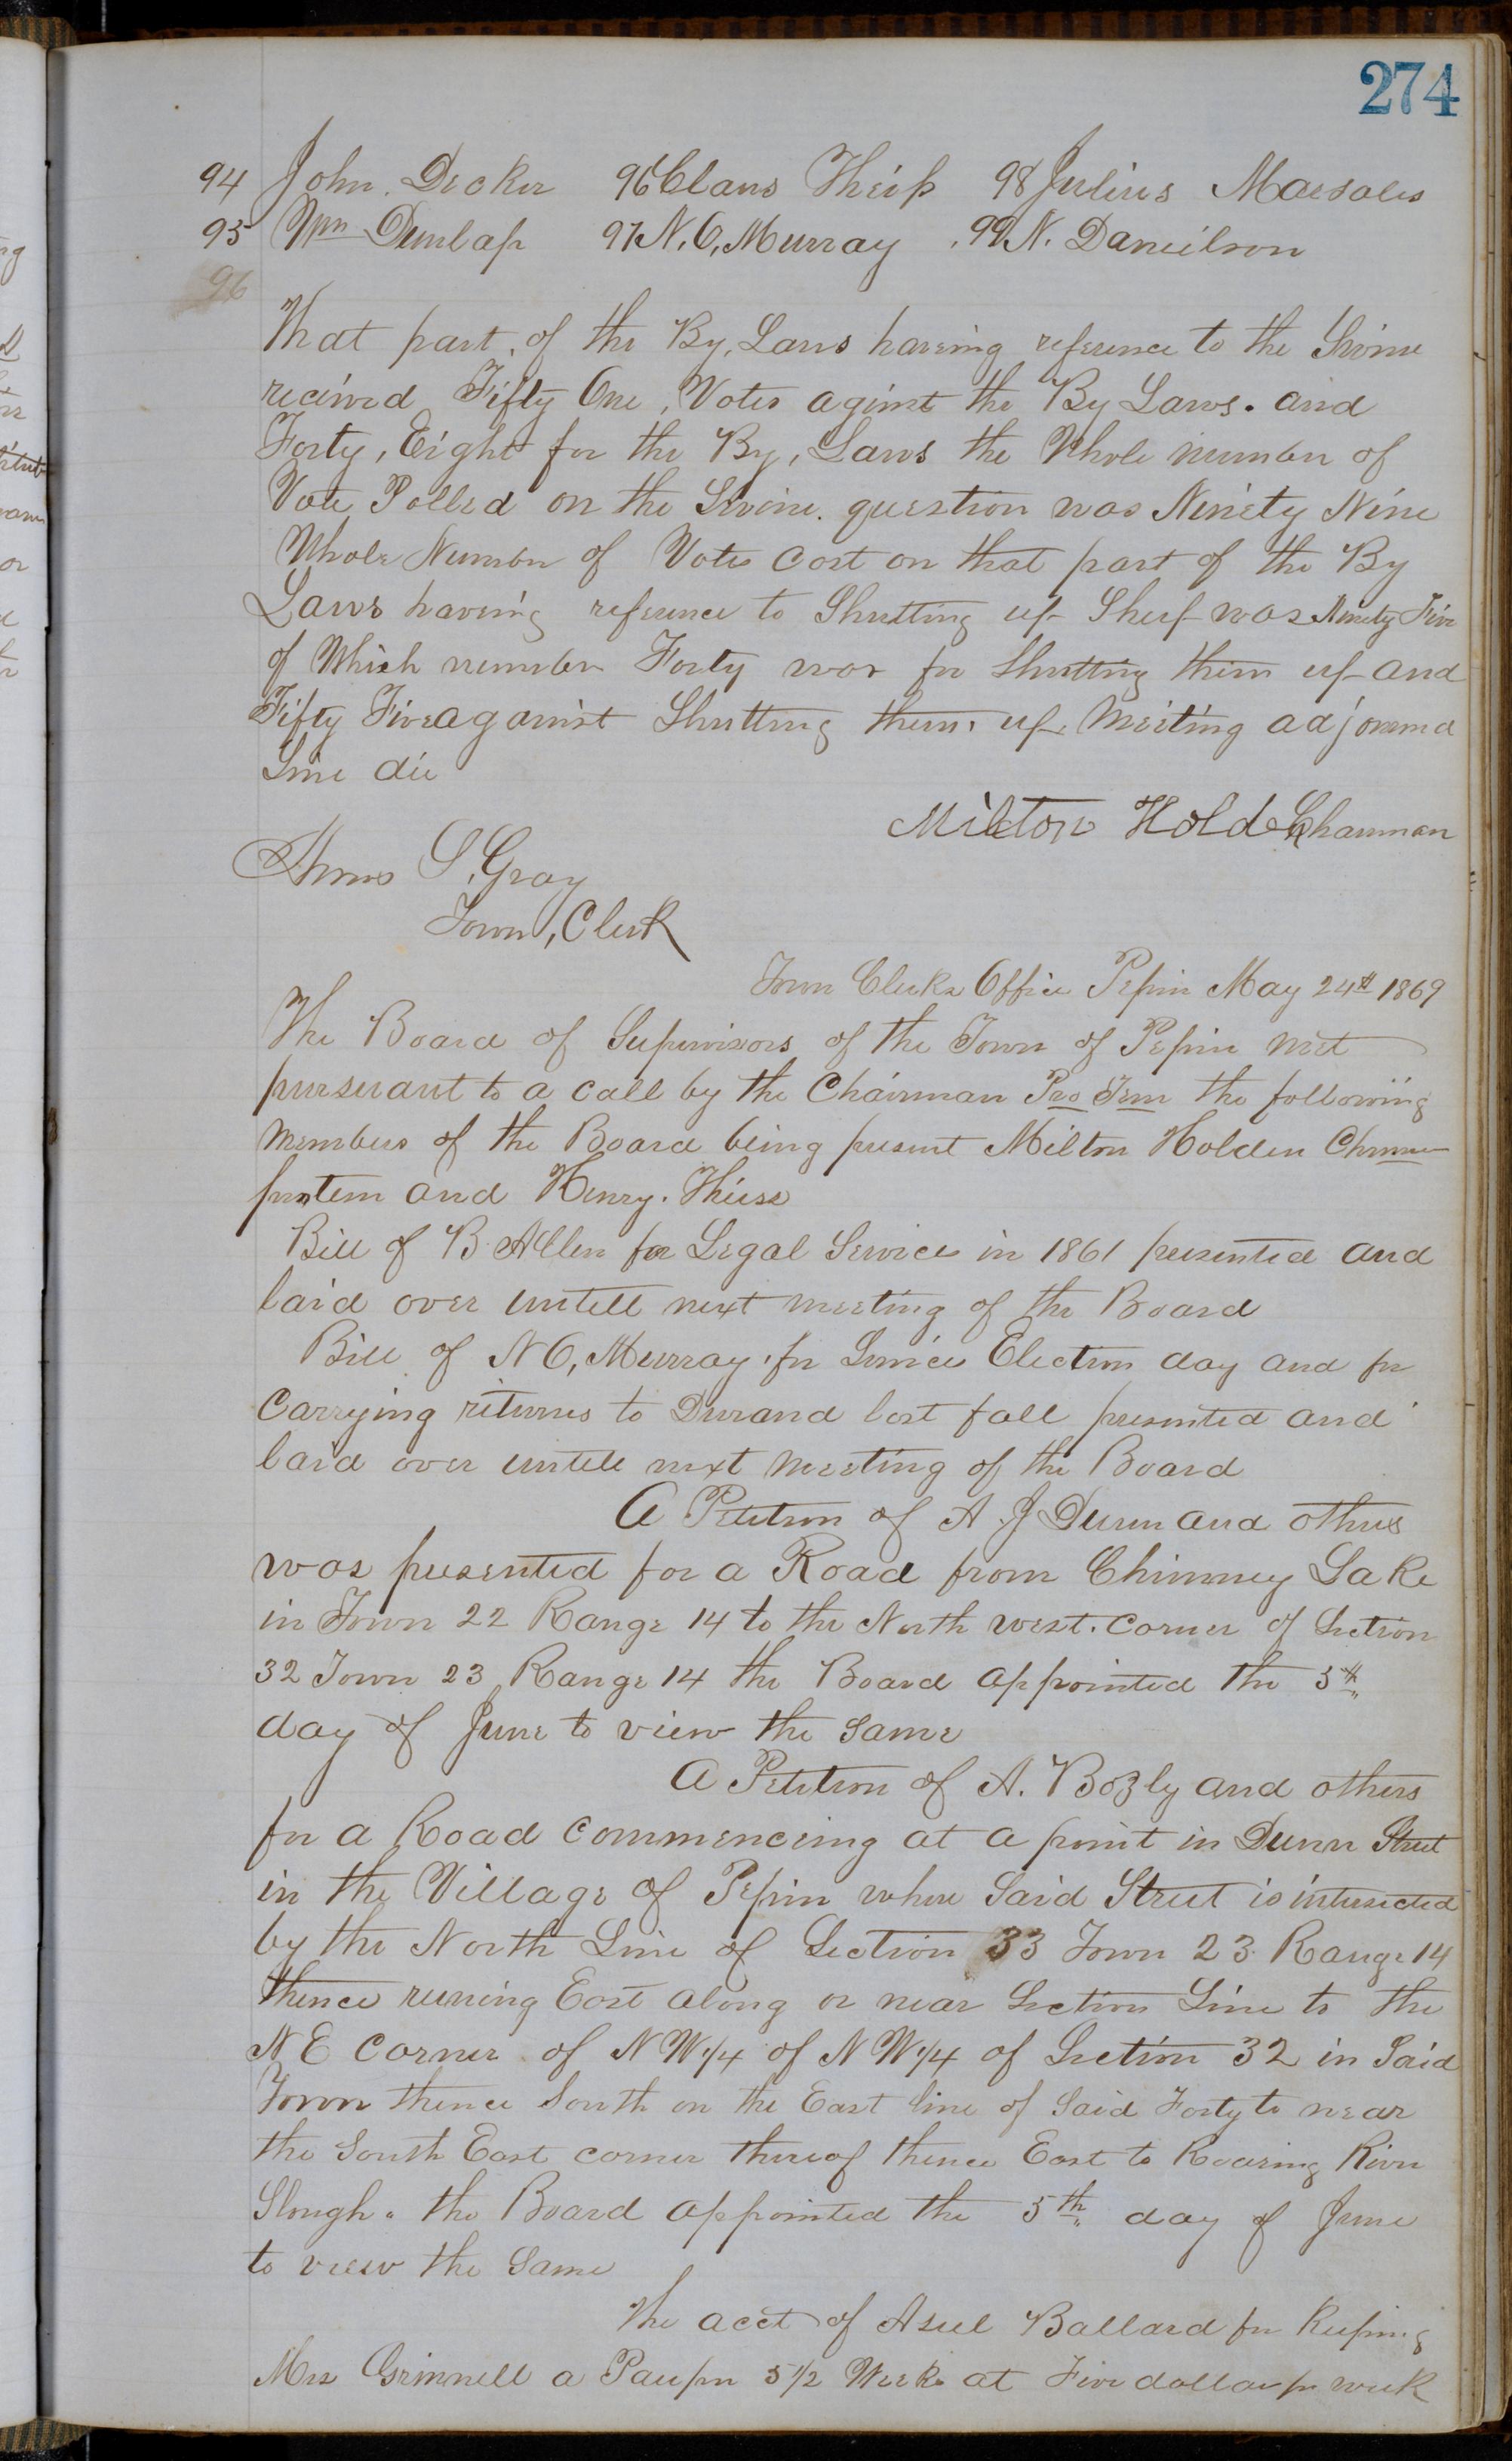 274
94 John. Decker 96 Claus Theip 98 Julius Maesales
95 Wm Dunlap 97 N. O, Murray 99 N. Daneilson
96
That part, of the By, Laws haveing reference to the Swine
recived Fifty One, Votes aginst the By Laws. and
Forty, Eight for the By, Laws the Whole number of
Vote Polled on the Swine. question was Ninety Nine
Whole Number of Votes Cast on that part of the By
Laws having reference to Shutting up Sheep was Ninety Five
of Which number Forty was for Shutting them up and
Fifty Five against Shutting them, up, Meeting adjorned
Sine die
Milton Holden Chairman
Amos S, Gray
Town, Clerk
Town Clerks Office Pepin May 24th 1869
The Board of Supervisors of the Town of Pepin met
pursuant to a call by the Chairman Pro Tem the following
members of the Board being present Milton Holden Chrman
protem and Henry. Thiese
Bill of B. Allen for Legal Services in 1861 presented and
laid over untill next meeting of the Board
Bill of N O, Murray, for Services Election day and for
Carrying returnes to Durand last fall presented and
laid over untill next meeting of the Board
A Petition of A. J Durin and others
was presented for a Road from Chimney Lake
in Town 22 Range 14 to the North west. corner of Section
32 Town 23 Range 14 the Board appointed the 5th
day of June to view the Same
A Petition of A. Bozly and others
for a Road commenceing at a point in Dunn Street
in the Village of Pepin where Said Street is intersected
by the North Line of Section 33 Town 23 Range 14
thence runing East along or near Section Line to the
N E Corner of N W 1/4 of N W 1/4 of Section 32 in Said
Town thence South on the East line of Said Forty to near
the South East corner thereof thence East to Roaring River
Slough. the Board appointed the 5th day of June
to view the Same
The acct of Asul Ballard for Keeping
Mrs Grinnell a Pauper 5 1/2 Weeks at Five dollars pr week